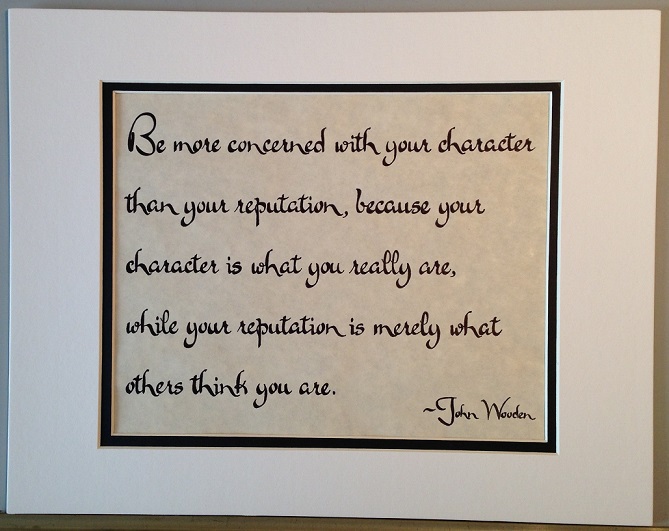 Be more concerned with your character
than your reputation, because your
character is what you really are,
while your reputation is merely what
others think you are.
~John Wooden